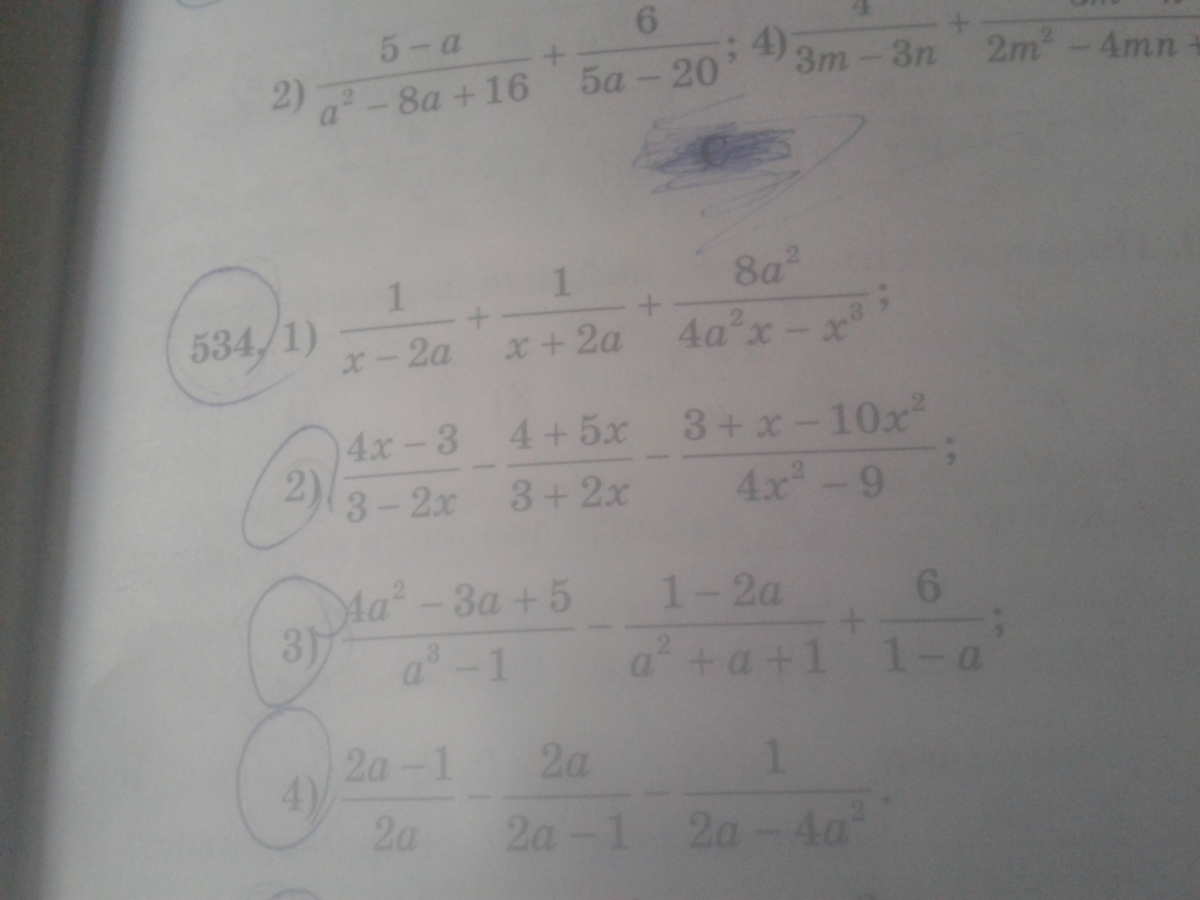 2) (5 − a)/(a² − 8a + 16) + 6/(5a − 20); 4) 4/(3m − 3n) +
C
534. 1) 1/(x − 2a) + 1/(x + 2a) + 8a²/(4a²x − x³);
2) (4x − 3)/(3 − 2x) − (4 + 5x)/(3 + 2x) − (3 + x − 10x²)/(4x² − 9);
3) (4a² − 3a + 5)/(a³ − 1) − (1 − 2a)/(a² + a + 1) + 6/(1 − a);
4) (2a − 1)/2a − 2a/(2a − 1) − 1/(2a − 4a²).